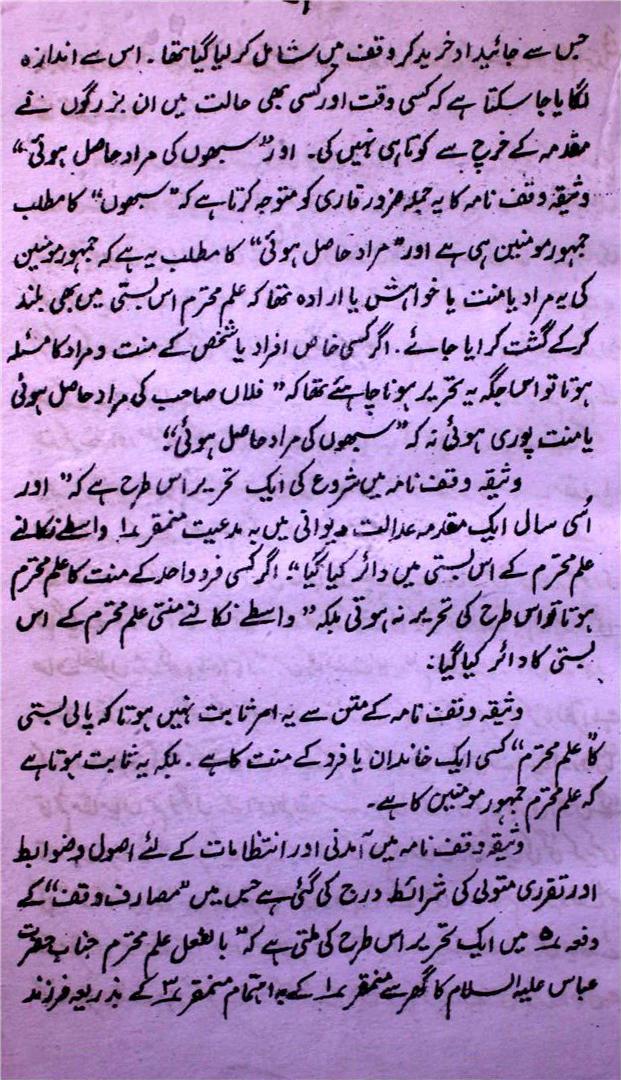 جس سے جائیداد خرید کر وقف میں شامل کر لیا گیا تھا۔ اس سے اندازہ
لگایا جا سکتا ہے کہ کسی وقت اور کسی بھی حالت میں ان بزرگوں نے
مقدمہ کے خرچ سے کوتاہی نہیں کی۔ اور "سبھوں کی مراد حاصل ہوئی"
وثیقہ وقف نامہ کا یہ جملہ ضرور قاری کو متوجہ کرتا ہے کہ "سبھوں" کا مطلب
جمہور مومنین ہی ہے اور "مراد حاصل ہوئی" کا مطلب یہ ہے کہ جمہور مومنین
کی یہ مراد یا منت یا خواہش یا ارادہ تھا کہ علم محترم اس بستی میں بھی بلند
کر کے گشت کرایا جائے۔ اگر کسی خاص افراد یا شخص کے منت و مراد کا مسئلہ
ہوتا تو اس جگہ یہ تحریر ہونا چاہئے تھا کہ "فلاں صاحب کی مراد حاصل ہوئی
یا منت پوری ہوئی نہ کہ "سبھوں کی مراد حاصل ہوئی"؛
وثیقہ وقف نامہ میں شروع کی ایک تحریر اس طرح ہے کہ "اور
اُسی سال ایک مقدمہ عدالت دیوانی میں بہ مدعیت منمقر ۱؎ واسطے نکالنے
علم محترم کے اس بستی میں دائر کیا گیا"؛ اگر کسی فرد واحد کے منت کا علم محترم
ہوتا تو اس طرح کی تحریر نہ ہوتی بلکہ "واسطے نکالنے منتی علم محترم کے اس
بستی کا دائر کیا گیا:
وثیقہ وقف نامہ کے متن سے یہ امر ثابت نہیں ہوتا کہ پالی بستی
کا "علم محترم" کسی ایک خاندان یا فرد کے منت کا ہے۔ بلکہ یہ ثابت ہوتا ہے
کہ علم محترم جمہور مومنین کا ہے۔
وثیقہ وقف نامہ میں آمدنی اور انتظامات کے لئے اصول و ضوابط
اور تقرری متولی کی شرائط درج کی گئی ہے جس میں "مصارف وقف" کے
دفعہ ۵؎ میں ایک تحریر اس طرح کی ملتی ہے کہ "بالفعل علم محترم جناب حضرت
عباس علیہ السلام کا گھر سے منمقر ۱؎ کے بہ اہتمام منمقر ۳؎ کے بذریعہ فرزند